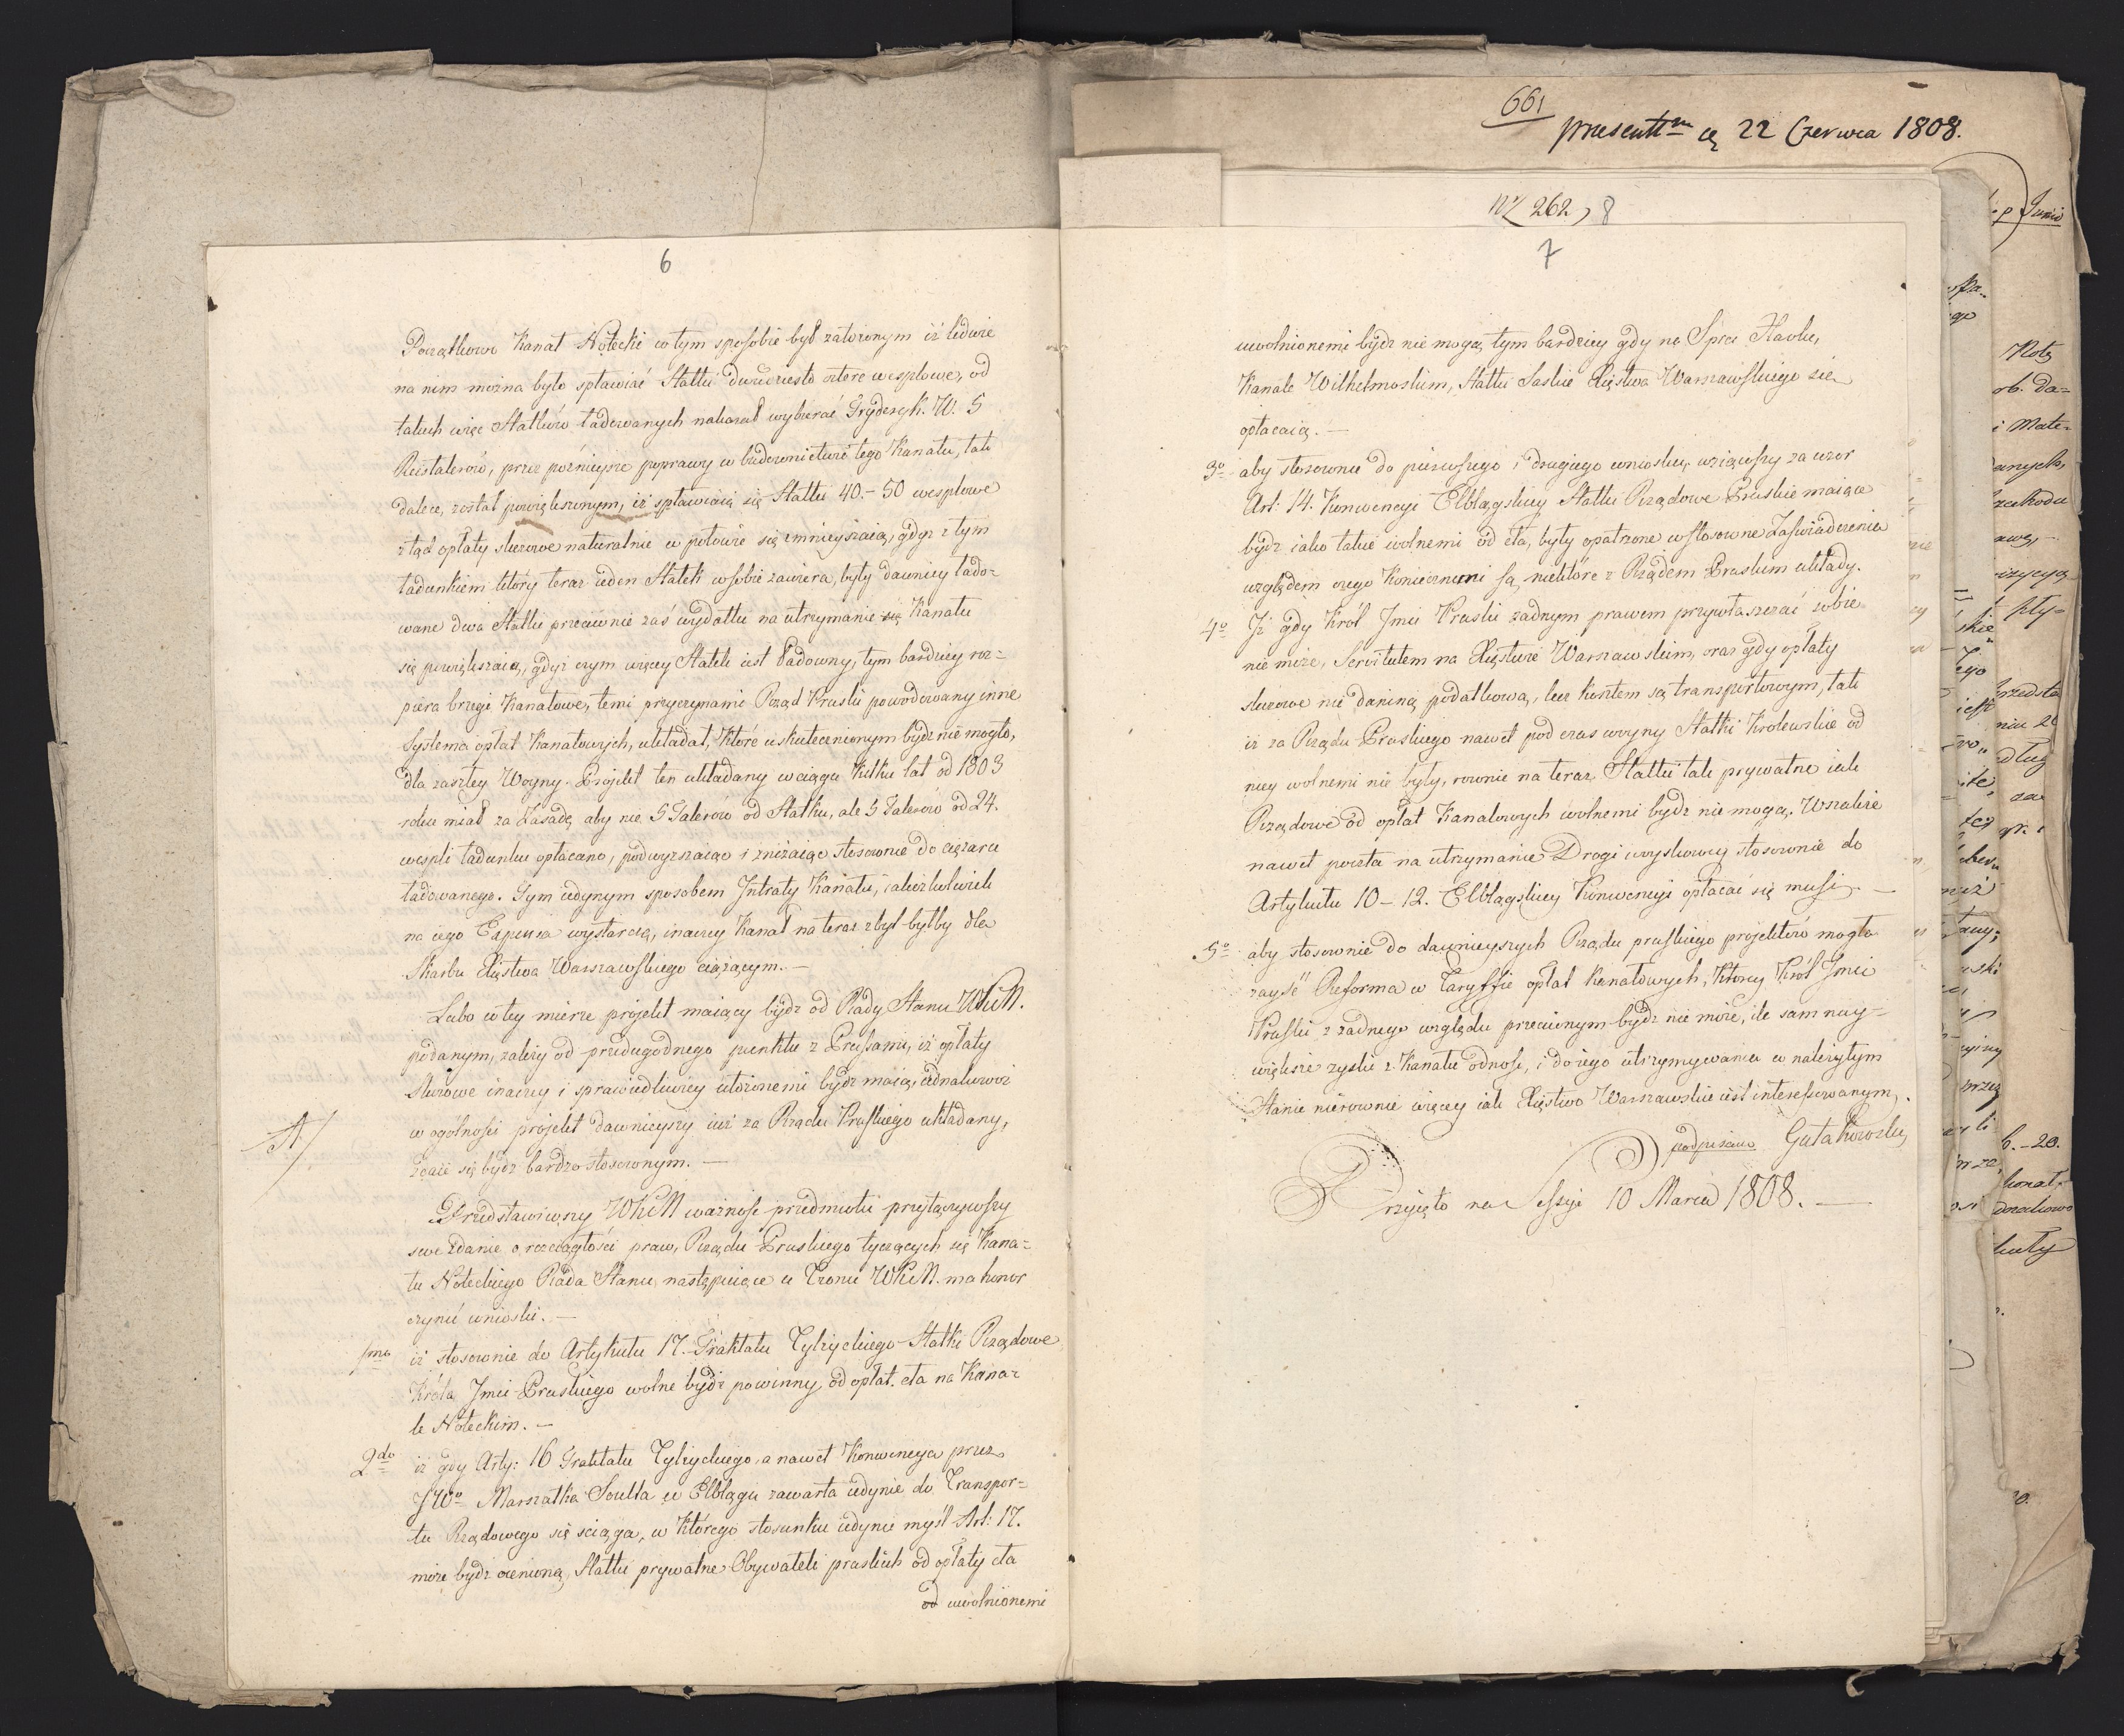 6
Początkowo Kanał Notecki w tym sposobie był założonym iż ledwie
na nim można było spławiać Statki dwudziesto cztero wesplowe, od
takich więc Statków ładowanych nakazał wybierać Fryderyk W. 5
Reistalerów, przez poźnieysze poprawy w budownictwie tego Kanału, tak
dalece został powiększonym, iż spławiaią się Statki 40.–50 wesplowe
ztąd opłaty sluzowe naturalnie w połowie się zmnieyszaią, gdyż z tym
ładunkiem który teraz ieden Statek w sobie zawiera, były dawniey łado=
wane dwa Statki przeciwnie zaś wydatki na utrzymanie się Kanału
się powiększaią, gdyż czym więcey Statek iest ładowny, tym bardziey roz=
piera brzegi Kanałowe, temi przyczynami Rząd Pruski powodowany inne
Systema opłat Kanałowych, układał, Które uskutecznionym bydz nie mogło,
dla zaszłey Woyny. Projekt ten układany w ciągu Kilku lat od 1803
roku miał za Zasadę aby nie 5 Talerów od Statku, ale 5 Talerów od 24.
wespli ładunku opłacano, podwyzszaiąc i zniżaiąc stosownie do ciężaru
ładowanego. Tym iedynym sposobem Intraty Kanału, iakożkolwiek
na iego Expensa wystarczą, inaczey Kanał na teraz zbyt byłby dla
Skarbu Xięstwa Warszawskiego ciążącym. —
Lubo w tey mierze projekt maiący bydz od Rady Stanu WKM.
podanym, zależy od przedugodnego punktu z Prussami, iż opłaty
sluzowe inaczey i sprawiedliwiey ułożonemi bydz maią, iednakowoż
A/
w ogólności projekt dawnieyszy iuż za Rządu Pruskiego układany,
zdaie się bydz bardzo stosownym. —
Przedstawiwszy WKM ważność przedmiotu przyłączywszy
swe zdanie o rozciągłości praw, Rządu Pruskiego tyczących się Kana=
łu Noteckiego Rada Stanu następuiące u Tronu WKM. ma honor
czynić wnioski. —
1mo iż stosownie do Artykułu 17. Traktatu Tylżyckiego Statki Rządowe
Króla Jmci Pruskiego wolne bydz powinny, od opłat cła na Kana=
le Noteckim. —
2do iż gdy Arty: 16 Traktatu Tylżyckiego, a nawet Konwencya przez
JWo Marszałka Soulta w Elblągu zawarta iedynie do Transpor=
tu Rządowego się sciąga, w Którego stosunku iedynie myśl Art: 17.
może bydz cenioną, Statki prywatne Obywateli pruskich od opłaty cła
od uwolnionemi
661
presentt m 22 Czerwca 1808.
No 262, 8
7
uwolnionemi bydz nie mogą, tym bardziey gdy na Sprei Havlu,
Kanale Wilhelmoskim, Statki Saskie Xięstwa Warszawskiego się
opłacaią. —
3o aby stosownie do pierwszego i drugiego wniosku, wziąwszy za wzor
Art: 14. Konwencyi Elblągskiey Statki Rządowe Pruskie maiące
bydz iako takie wolnemi od cła, były opatrzone w stosowne Zaświadczenia
względem czego Koniecznemi są niektóre z Rządem Pruskim układy.
4o Iż gdy Król Jmci Pruski żadnym prawem przywłaszczać sobie
nie może, Servitutem na Xięstwie Warszawskim, oraz gdy opłaty
sluzowe nie daniną podatkową, lecz kosztem są transportowym, tak
iż za Rządu Pruskiego nawet pod czas woyny Statki Krolewskie od
niey wolnemi nie były, rownie na teraz Statki tak prywatne iak
Rządowe od opłat Kanałowych wolnemi bydz nie mogą. Wszakże
nawet poczta na utrzymanie Drogi woyskowey stosownie do
Artykułu 10–12. Elblągskiey Konwencyi opłacać się musi. —
5o aby stosownie do dawnieyszych Rządu pruskiego projektów mogła
zayść Reforma w Taryffie opłat Kanałowych, Ktorey Król Jmci
Pruski z żadnego względu przeciwnym bydz nie może, ile sam nay=
większe zyski z Kanału odnosi, i do iego utrzymywania w należytym
Stanie nierownie więcey iak Xięstwo Warszawskie iest interesowanym.
podpisano Gutakowski
Przyięto na Sessyi 10 Marca 1808. —